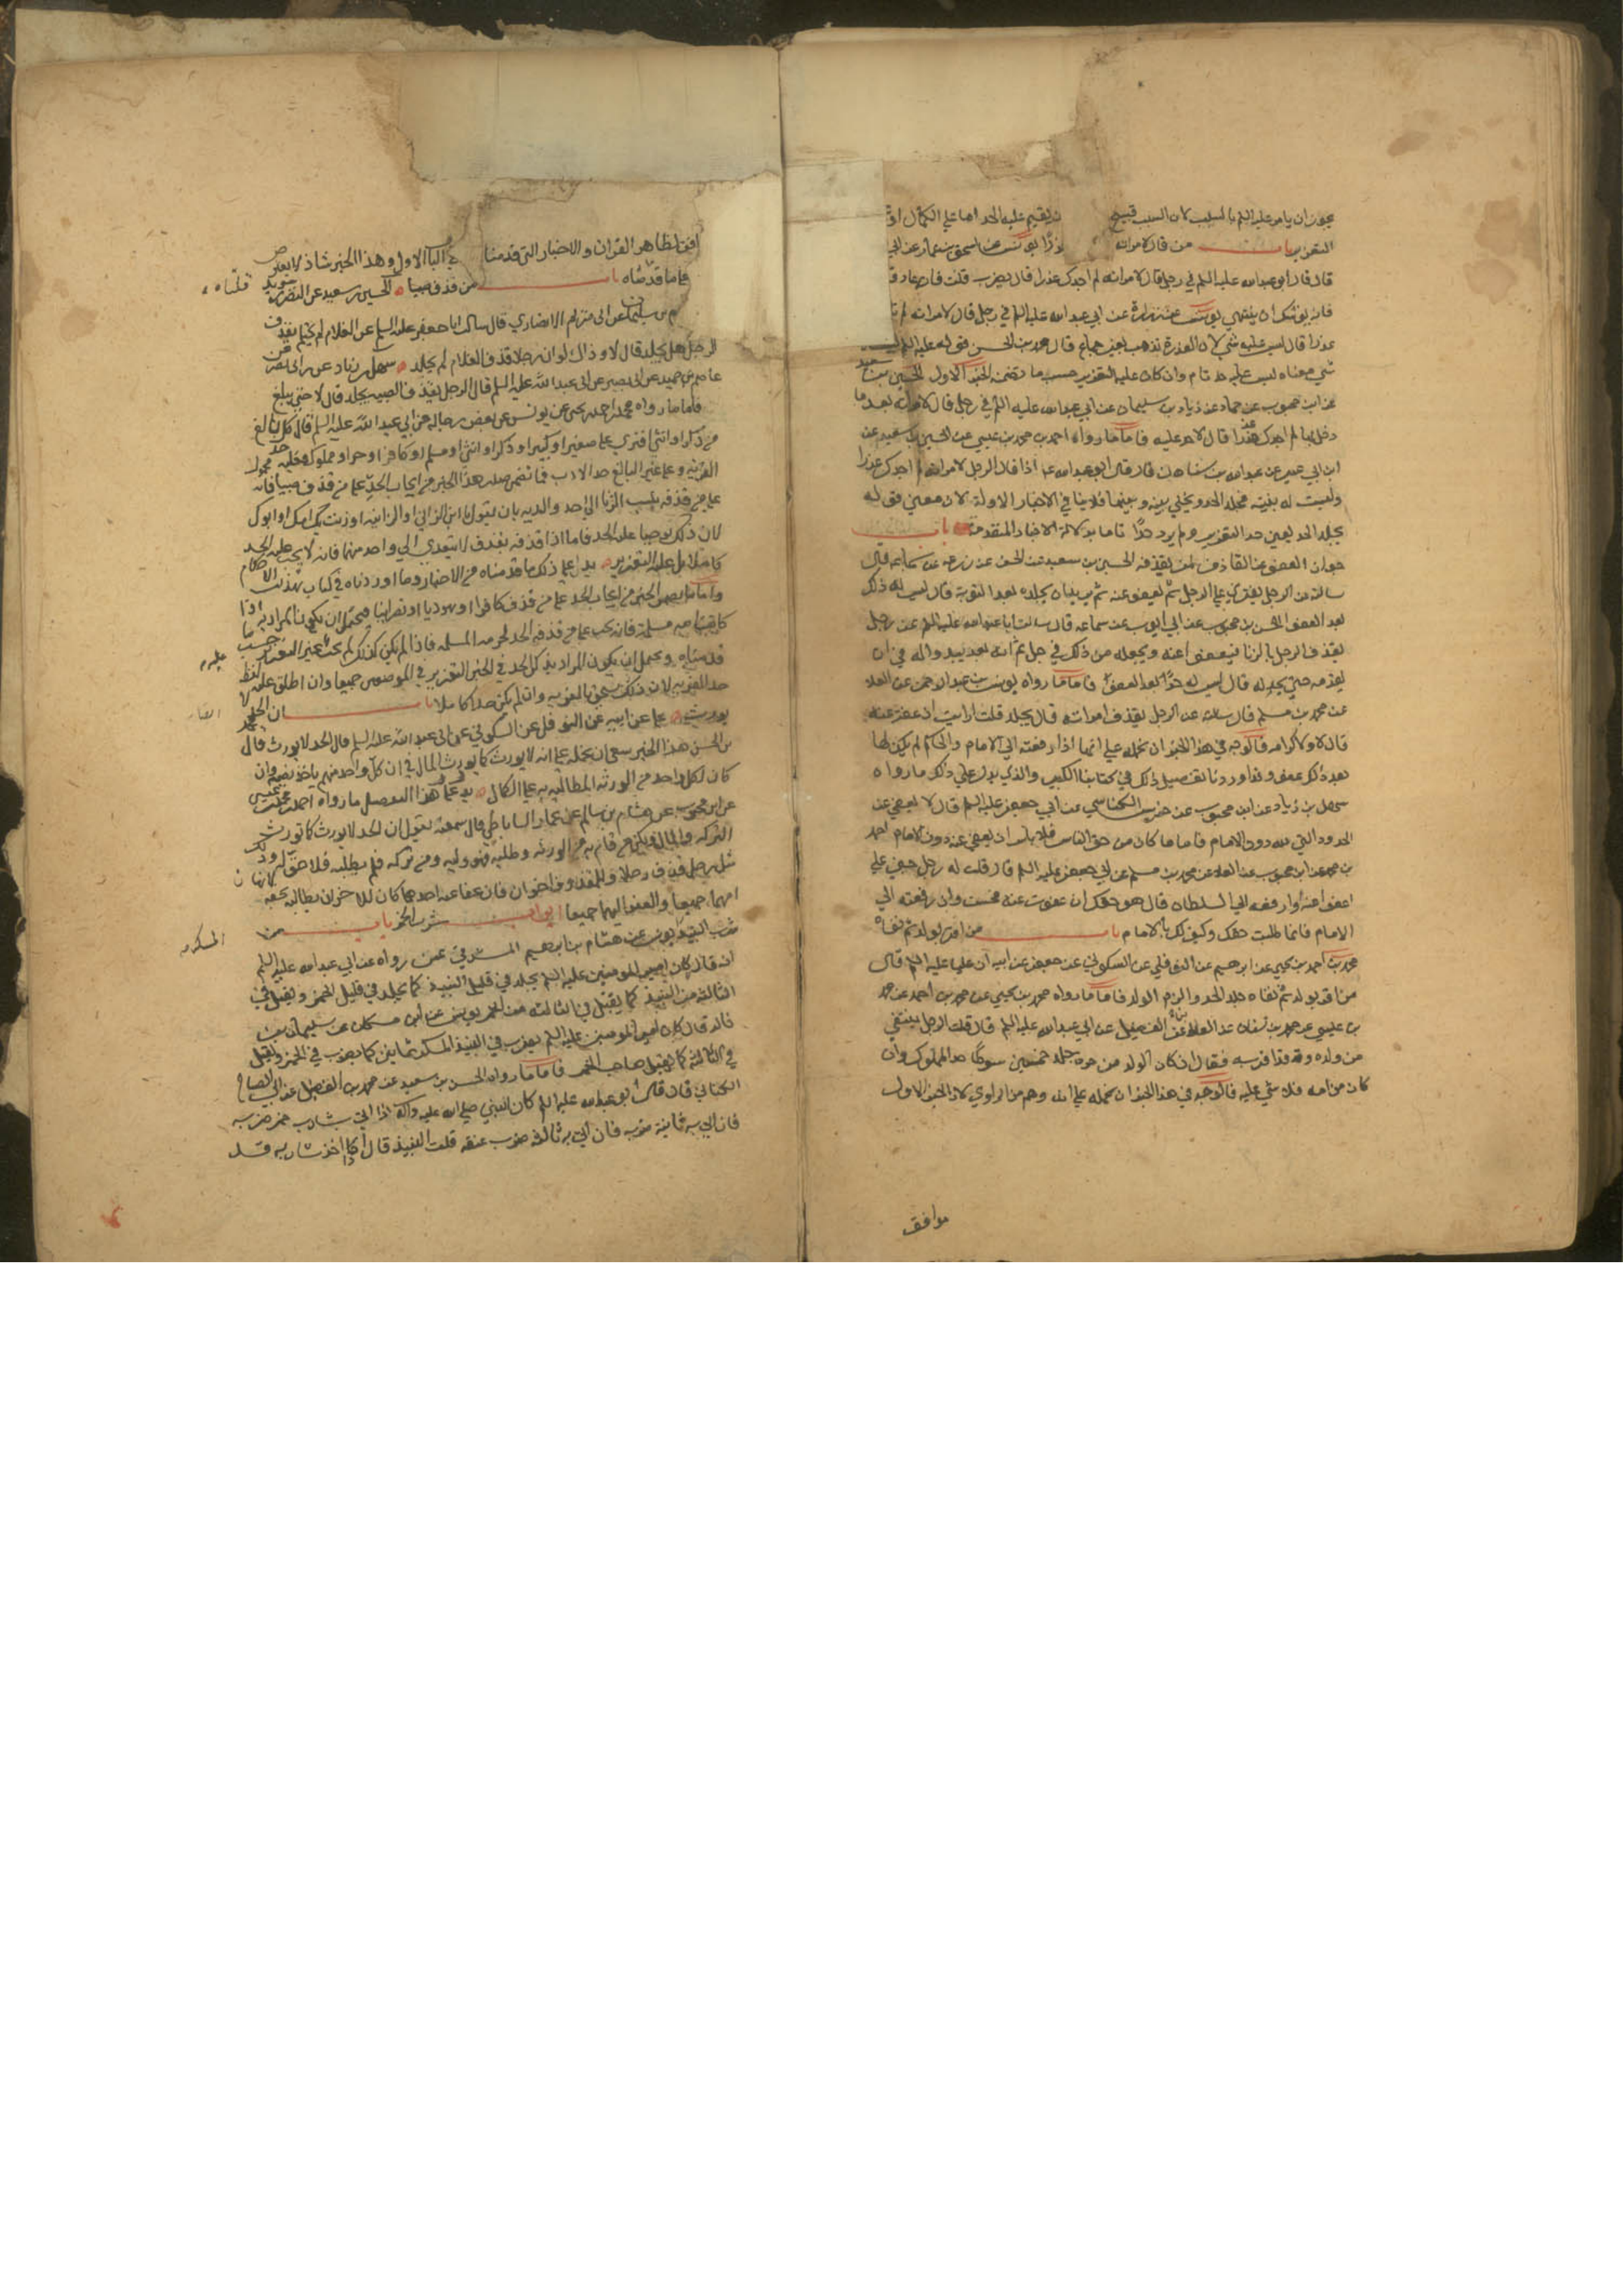 يجوز ان يامر عليه السلم بالسب لان السب قبيح ان يقيم عليه الحد اما على الكمال او
التعزير باب من قال لامراته عذرا يونس عن اسحق بن عمار عن ابي
قال قال ابو عبدالله عليه السلم في رجل قال لامراته لم اجدك عذرا قال يضرب قلت فان عاد
فانه يوشك ان ينتهي يونس عن زرارة عن ابي عبدالله عليه السلم في رجل قال لامراته لم
عذرا قال ليس عليه شي لان العذرة تذهب بغير جماع قال محمد بن الحسن فقوله عليه السلم ليس
شي معناه ليس عليه حد تام وان كان عليه التعزير حسب ما تضمنه الخبر الاول الحسين بن سعيد
عن ابن محبوب عن حماد عن زياد بن سليمان عن ابي عبدالله عليه السلم في رجل قال لامراته بعد ما
دخل بها لم اجدك عذرا قال لا حد عليه فاما ما رواه احمد بن محمد بن عيسي عن الحسين بن سعيد عن
ابن ابي عمير عن عبدالله بن سنان قال قال ابو عبدالله ع اذا قال الرجل لامراته لم اجدك عذرا
وليست له بينة يجلد الحد ويخلي بينه وبينها فلا ينافي الاخبار الاولة لان معني قوله
يجلد الحد يعني حد التعزير ولم يرد حدا تاما بدلالة الاخبار المتقدمة باب
جواز العفو عن القاذف لمن يقذفه الحسين بن سعيد عن الحسن عن زرعة عن سماعة قال
سالته عن الرجل يفتري علي الرجل ثم يعفو عنه ثم يريد ان يجلده بعد العفو قال ليس له ذلك
بعد العفو الحسن بن محبوب عن ابي ايوب عن سماعة قال سالت ابا عبدالله عليه السلم عن رجل
يقذف الرجل بالزنا فيعفوا عنه ويجعله من ذلك في حل ثم انه بعد يبدو له في ان
يقدمه حتي يجلده قال ليس له حد بعد العفو فاما ما رواه يونس بن عبد الرحمن عن العلا
عن محمد بن مسلم قال سالته عن الرجل يقذف امراته قال يجلد قلت ارايت ان عفت عنه
قال لا ولا كرامة فالوجه في هذا الخبر ان نحمله علي انها اذا رفعته الي الامام والحاكم لم يكن لها
بعد ذلك عفو وقد اوردنا تفصيل ذلك في كتابنا الكبير والذي يدل علي ذلك ما رواه
سهل بن زياد عن ابن محبوب عن ضريس الكناسي عن ابي جعفر عليه السلم قال لا يعفي عن
الحدود التي لله دون الامام فاما ما كان من حق الناس فلا باس ان يعفي عنه دون الامام احمد
بن محمد عن ابن محبوب عن العلا عن محمد بن مسلم عن ابي جعفر عليه السلم قال قلت له رجل جني علي
اعفوا عنه او ارفعه الي السلطان قال هو حقك ان عفوت عنه فحسن وان رفعته الي
الامام فانما طلبت حقك وكيف لك بالامام باب من اقر بولد ثم نفاه
محمد بن احمد بن يحيي عن ابرهيم عن النوفلي عن السكوني عن جعفر عن ابيه ان عليا عليه السلم قال
من اقر بولد ثم نفاه جلد الحد والزم الولد فاما ما رواه محمد بن يحيي عن محمد بن احمد عن محمد
بن عيسي عن محمد بن سنان عن العلا عن الفضيل عن ابي عبدالله عليه السلم قال قلت الرجل ينتفي
من ولده وقد اقر به فقال ان كان الولد من حرة جلد خمسين سوطا حد المملوك وان
كان من امه فلا شي عليه فالوجه في هذا الخبر ان نحمله علي انه وهم من الراوي لان الخبر الاول
موافق
افق لظاهر القران والاخبار التي قدمنا في الباب الاول وهذا الخبر شاذ لا يعارض
بما قدمناه باب من قذف صبيا الحسين بن سعيد عن النضر بن سويد
عن ابي مريم الانصاري قال سالت ابا جعفر عليه السلم عن الغلام لم يحتلم يقذف
الرجل هل يجلد قال لا وذاك لو ان رجلا قذف الغلام لم يجلد سهل بن زياد عن ابن ابي نصر عن
عاصم بن حميد عن ابي بصير عن ابي عبد الله عليه السلم قال الرجل يقذف الصبية يجلد قال لا حتي تبلغ
فاما ما رواه محمد بن احمد بن يحيي عن يونس عن بعض رجاله عن ابي عبد الله عليه السلم قال كل بالغ
من ذكر او انثي افتري علي صغير او كبير او ذكر او انثي او مسلم او كافر او حر او مملوك فعليه حد
الفرية وعلي غير البالغ حد الادب فما تضمن هذا الخبر من ايجاب الحد علي من قذف صبيا فانه محمول
علي من قذفه بنسب الزنا الي احد والديه بان يقول يا ابن الزاني او الزانية او زنت بك امك او ابوك
لان ذلك يوجب عليه الحد فاما اذا قذفه بقذف لا يتعدي الي واحد منهما فانه لا يجب عليه الحد
كاملا بل عليه التعزير يدل علي ذلك ما قدمناه من الاخبار وما اوردناه في كتاب تهذيب الاحكام
واما ما تضمن الخبر من ايجاب الحد علي من قذف كافرا او يهوديا او نصرانيا فيحتمل ان يكون المراد به اذا
كانت امه مسلمة فانه يجب علي من قذفه الحد لحرمة المسلمة فاذا لم يكن كذلك لم يجب غير التعزير حسب ما
قدمناه ويحتمل ان يكون المراد بذكر الحد في الخبر التعزير في الموضعين جميعا وان اطلق عليه لفظ
حد الفرية لان ذلك يستحق بالفرية وان لم يكن حدا كاملا باب ان الحد لا
يورث علي عن ابيه عن النوفلي عن السكوني عن ابي عبد الله عليه السلم قال الحد لا يورث قال
بن الحسن هذا الخبر ينبغي ان نحمله علي انه لا يورث كما يورث المال في ان كل واحد منهم ياخذ نصيبه وان
كان لكل واحد من الورثة المطالبة به علي الكمال يدل علي هذا التفصيل ما رواه احمد بن محمد بن عيسي
عن ابن محبوب عن هشام بن سالم عن عمار الساباطي قال سمعته يقول ان الحد لا يورث كما تورث
التركة والمال ولكن من قام به من الورثة وطلبه فهو وليه ومن تركه فلم يطلبه فلا حق له وذلك
مثل رجل قذف رجلا وللمقذوف اخوان فان عفا عنه احدهما كان للاخر ان يطالبه بحقه لانها
امهما جميعا والعفو اليهما جميعا ابواب شرب الخمر باب من
شرب النبيذ يونس عن هشام بن ابرهيم المشرقي عمن رواه عن ابي عبدالله عليه السلم
انه قال كان امير المومنين عليه السلم يجلد في قليل النبيذ كما يجلد في قليل الخمر ويقتل في
الثالثة من النبيذ كما يقتل في الثالثة من الخمر يونس عن ابن مسكان عن سليمان بن
خالد قال كان امير المومنين عليه السلم يضرب في النبيذ المسكر ثمانين كما يضرب في الخمر ويقتل
في الثالثة كما يقتل صاحب الخمر فاما ما رواه الحسين بن سعيد عن محمد بن الفضيل عن ابي الصباح
الكناني قال قال ابو عبدالله عليه السلم كان النبي صلي الله عليه واله اذا اتي بشارب خمر ضربه
فان اتي به ثانية ضربه فان اتي به ثالثة ضرب عنقه قلت النبيذ قال اذا اخذ شاربه قد
قلناه
عليه
المسكر